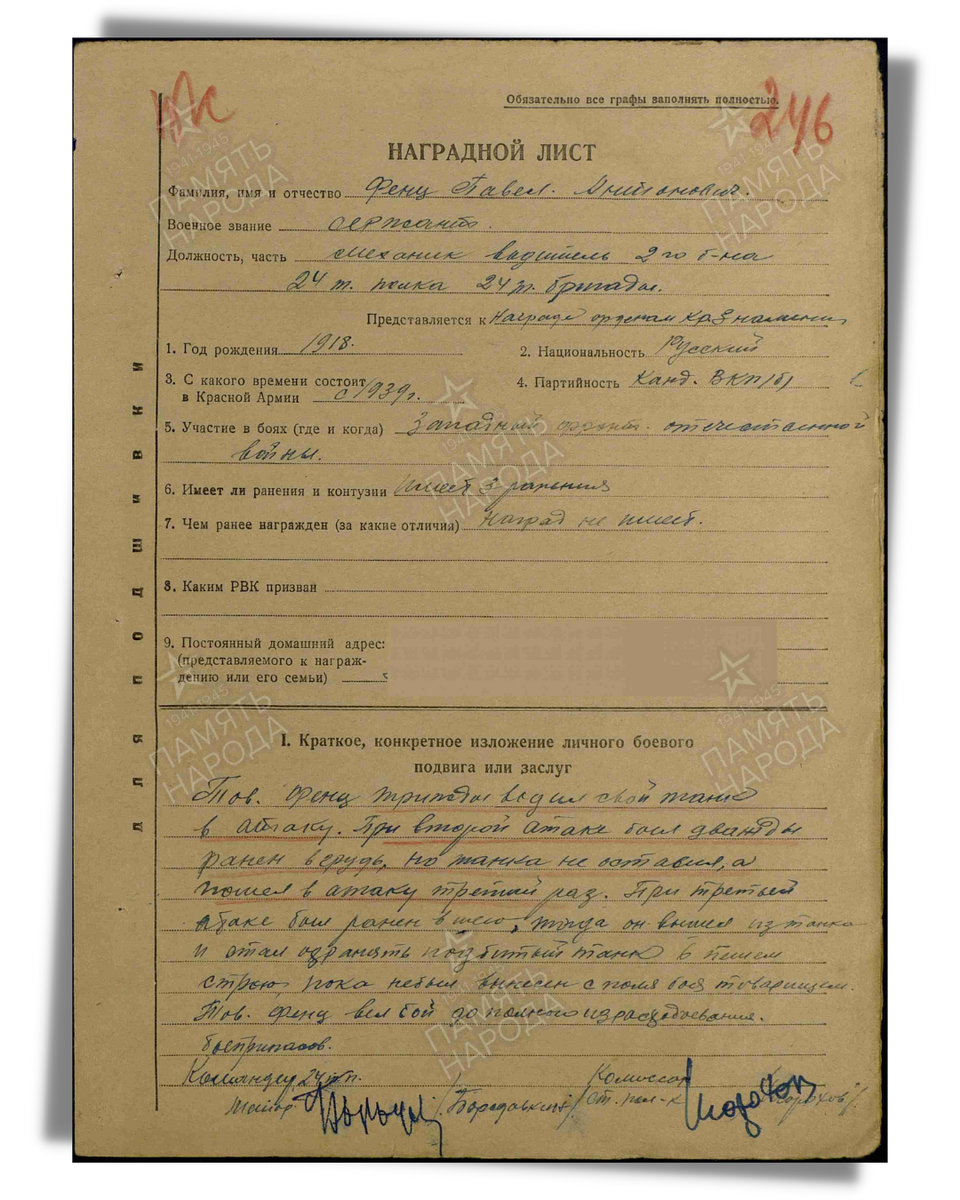 Обязательно все графы заполнять полностью.
246
НАГРАДНОЙ ЛИСТ
Фамилия, имя и отчество Фенц Павел Антонович.
Военное звание сержант.
Должность, часть механик водитель 2го б-на
24 т. полка 24 т. бригады.
Представляется к Награде орденом Кр. Знамени
1. Год рождения 1918. 2. Национальность Русский
3. С какого времени состоит в Красной Армии с 1939 г. 4. Партийность Канд. ВКП/б/
5. Участие в боях (где и когда) Западный фронт. отечественной
войны.
6. Имеет ли ранения и контузии Имеет 3 ранения
7. Чем ранее награжден (за какие отличия) Наград не имеет.
8. Каким РВК призван
9. Постоянный домашний адрес:
(представляемого к награж-
дению или его семьи)
ДЛЯ ПОДШИВКИ
I. Краткое, конкретное изложение личного боевого
подвига или заслуг
Тов. Фенц трижды водил свой танк
в атаку. При второй атаке был дважды
ранен в грудь, но танка не оставил, а
пошел в атаку третий раз. При третьей
атаке был ранен в шею, тогда он вышел из танка
и стал охранять подбитый танк в пешем
строю, пока небыл вынесен с поля боя товарищем.
Тов. Фенц вел бой до полного израсходования.
боеприпасов.
Командир 24 тп. Комиссар
Майор /Бородовский/ Ст. пол-к
ПАМЯТЬ НАРОДА
1941-1945